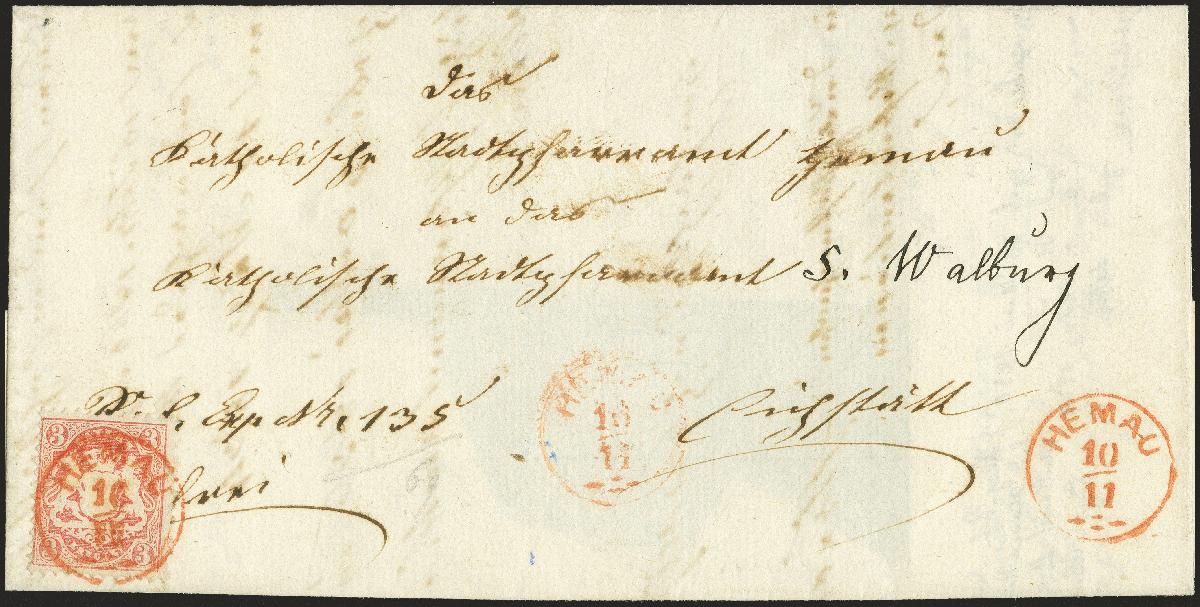 das
Katholische Stadtpfarramt Hemau
an das
Katholische Stadtpfarramt S. Walburg
Exp. Nr. 135
Eichstätt
frei
HEMAU
10
11
HEMAU
10
11
HEMAU
10
11
3
3
3